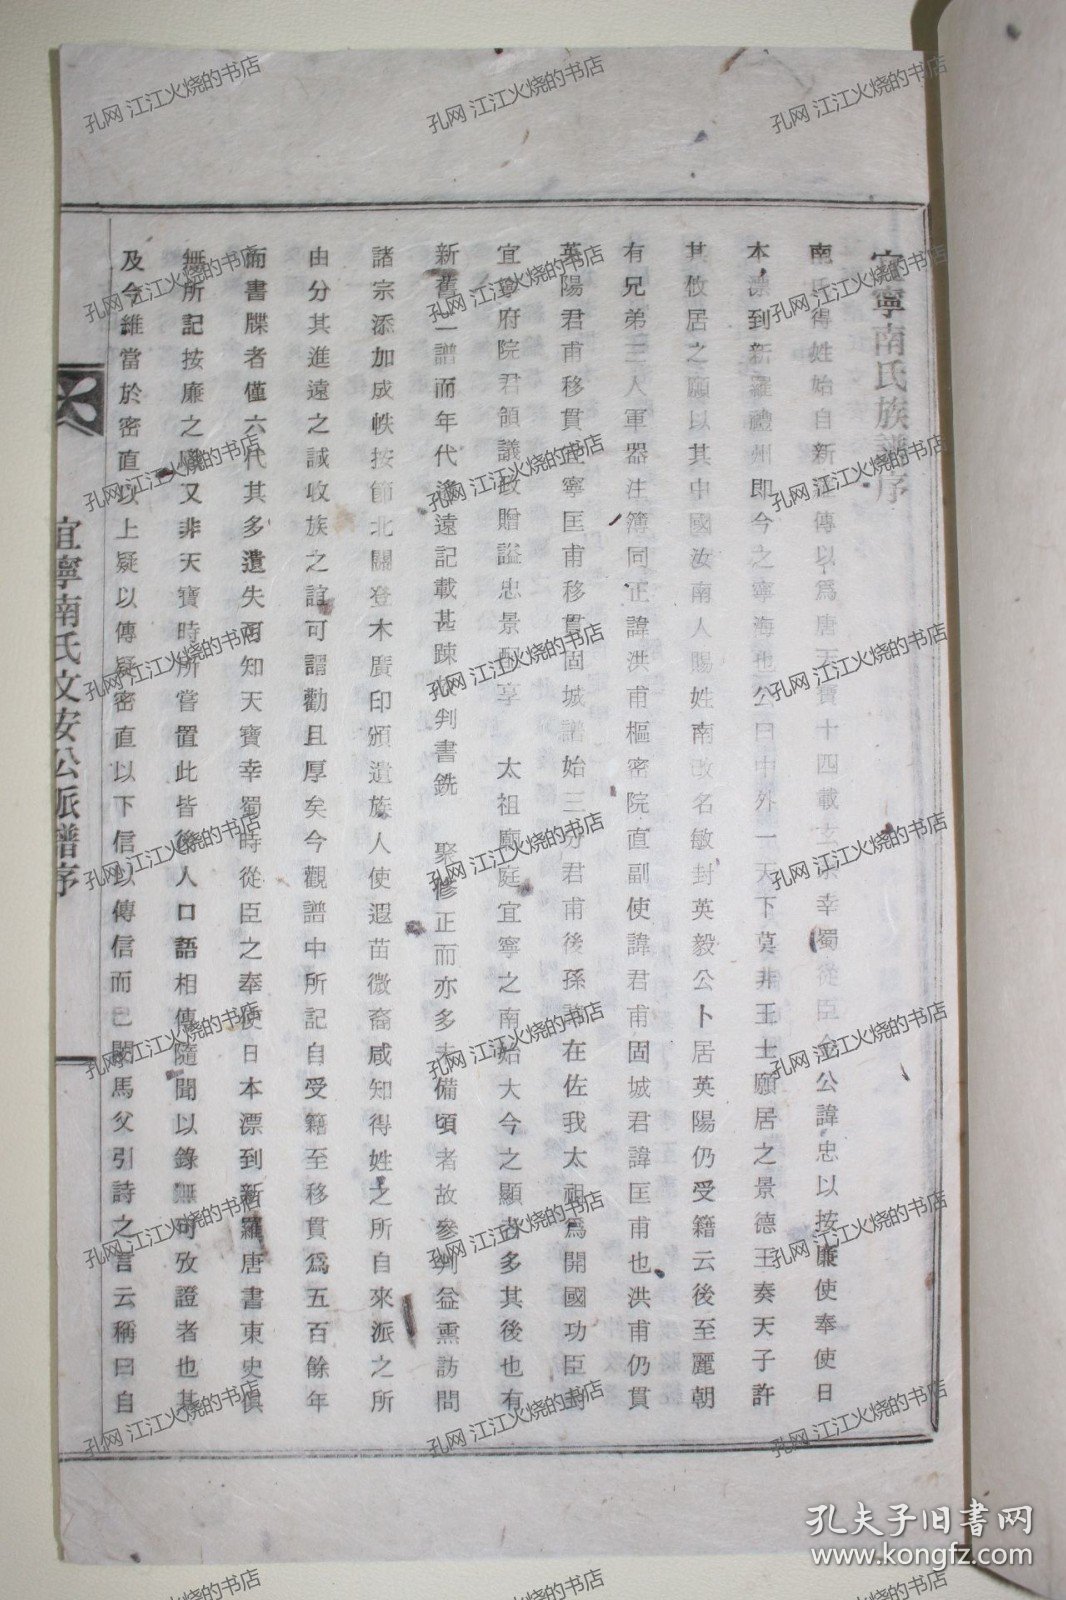 宜寧南氏族譜序
南氏得姓始自新羅傳以爲唐天寶十四載玄宗幸蜀從臣金公諱忠以按廉使奉使日
本漂到新羅禮州即今之寧海也公曰中外一天下莫非王土願居之景德王奏天子許
其攸居之願以其中國汝南人賜姓南改名敏封英毅公卜居英陽仍受籍云後至麗朝
有兄弟三人軍器注簿同正諱洪甫樞密院直副使諱君甫固城君諱匡甫也洪甫仍貫
英陽君甫移貫宜寧匡甫移貫固城譜始三分君甫後孫諱在佐我太祖爲開國功臣封
宜寧府院君領議政贈謚忠景配享 太祖廟庭宜寧之南始大今之顯者多其後也有
新舊二譜而年代遙遠記載甚踈故判書銑 聚修正而亦多未備頃者故參判益熏訪問
諸宗添加成帙按節北關登木廣印頒遺族人使遐苗微裔咸知得姓之所自來派之所
由分其進遠之誠收族之誼可謂勸且厚矣今觀譜中所記自受籍至移貫爲五百餘年
而書牒者僅六代其多遺失可知天寶幸蜀時從臣之奉使日本漂到新羅唐書東史俱
無所記按廉之職又非天寶時所嘗置此皆後人口語相傳隨聞以錄無可攷證者也甚
及今維當於密直以上疑以傳疑密直以下信以傳信而已閔馬父引詩之言云稱曰自
宜寧南氏文安公派譜序
孔网 江江火烧的书店
孔夫子旧书网
www.kongfz.com